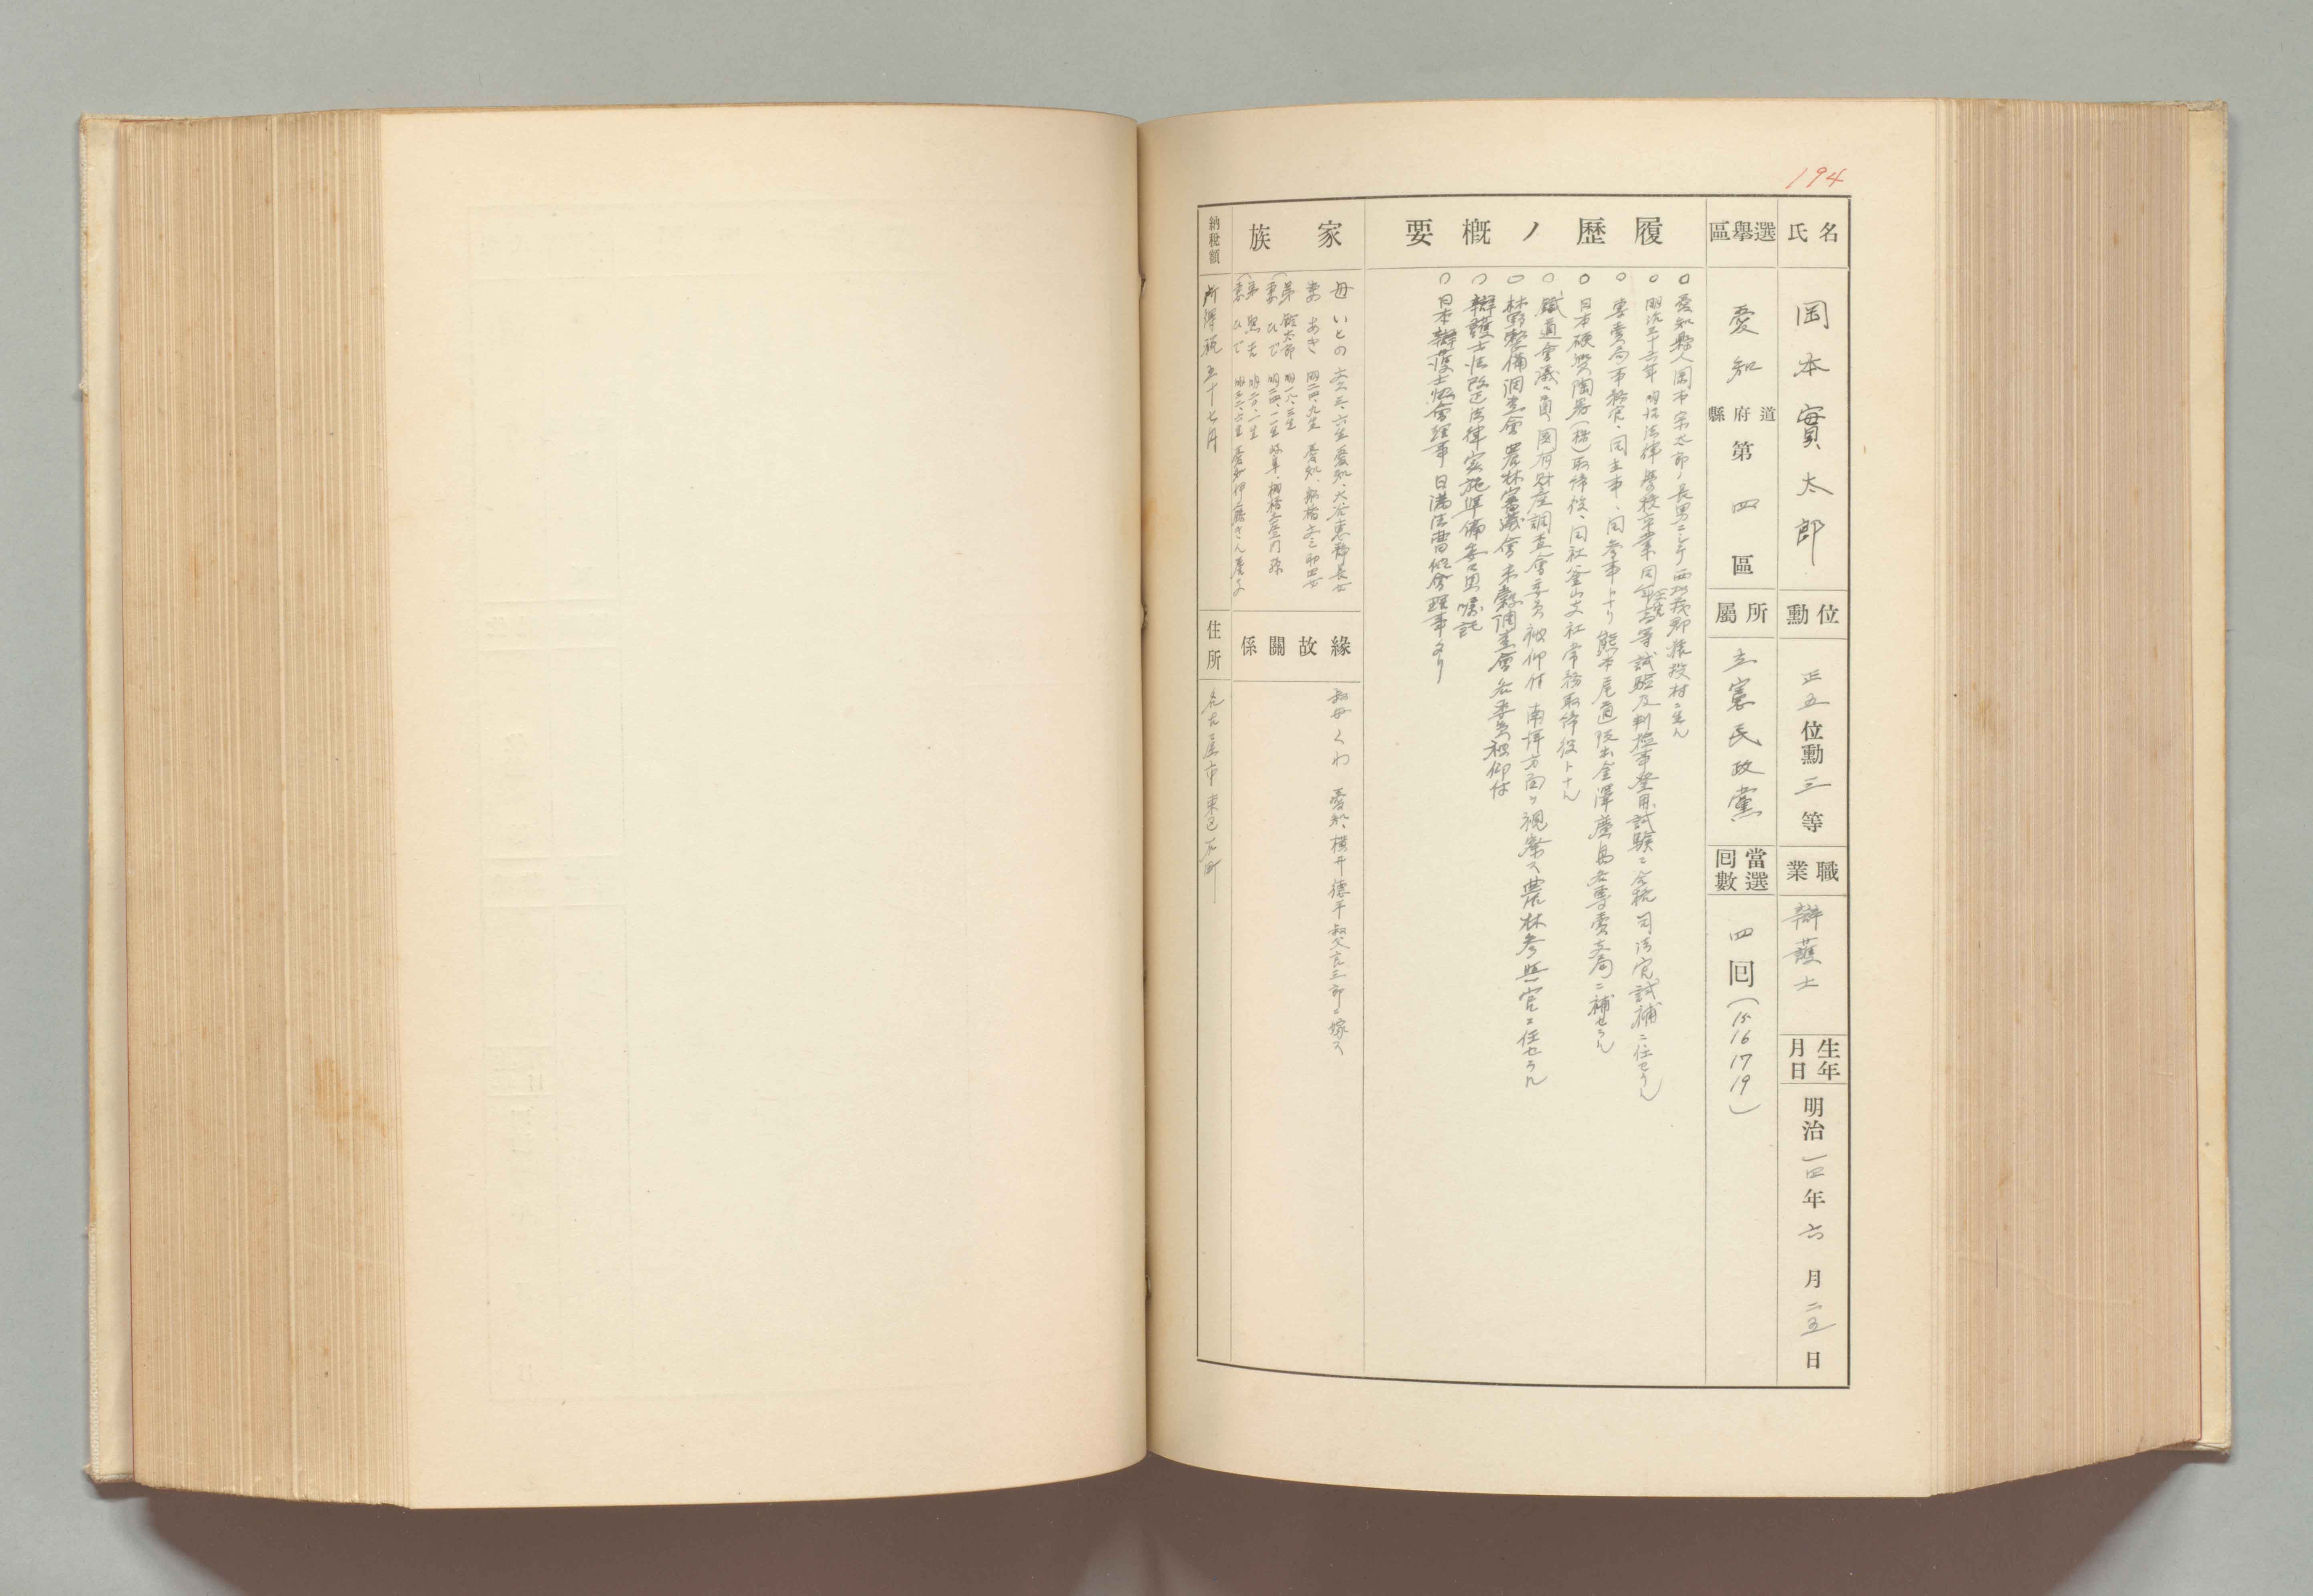 194
氏名
岡本實太郎
位勳
正五位勳三等
職業
辯護士
生年月日
明治一四年六月二五日
選擧區
愛知道府縣第四區
所屬
立憲民政黨
當選回數
四回（15 16 17 19）
履歷ノ概要
○愛知縣人岡本宗太郎ノ長男ニシテ西加茂郡猿投村ニ生ル
○明治三十六年明治法律學校卒業同年高等試驗及判檢事登用試驗ニ合格司法官試補ニ任セラル
○專賣局事務官、同主事、同參事トナリ熊本尾道阪出金澤廣島各專賣支局ニ補セラル
○日本硬質陶器（株）取締役、同社釜山支社常務取締役トナル
○鐵道會議々員國有財產調査會委員被仰付南洋方面ヲ視察ス農林參與官ニ任セラル
○林野整備調査會農林審議會米穀調査會各委員被仰付
○辯護士法改正法律實施準備委員囑託
○日本辯護士協會理事日滿法曹協會理事タリ
家族
母 いとの 文三、六生 愛知、大谷惠 長女
妻 あき 明二四、九生 愛知、船橋文三郎四女
弟 鉊太郎 明一八、三生
（妻 ひで 明二四、一一生 岐阜、棚橋
弟 照吉 明二〇、一生
（妻 ひで 明二六、六生 愛知伊藤きん養子
緣故關係
叔母くわ 愛知、橫井德平叔父吉三郞ニ嫁ス
納稅額
所得稅五十七円
住所
名古屋市東區